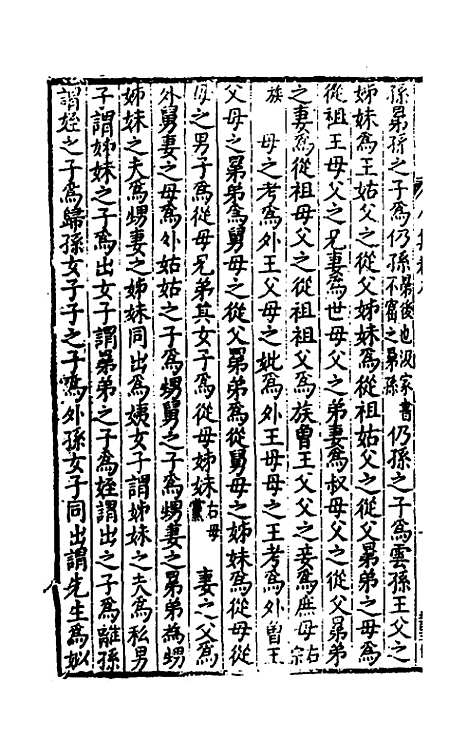 孫晜孫之子為仍孫晜後也汲冢書不窋之晜孫仍孫之子為雲孫王父之
姊妹為王姑父之從父姊妹為從祖姑父之從父晜弟之母為
從祖王母父之兄妻為世母父之弟妻為叔母父之從父晜弟
之妻為從祖母父之從祖祖父為族曾王父父之妾為庶母右宗
族　母之考為外王父母之妣為外王母母之王考為外曾王
父母之晜弟為舅母之從父晜弟為從舅母之姊妹為從母從
母之男子為從母兄弟其女子為從母姊妹右母黨　妻之父為
外舅妻之母為外姑姑之子為甥舅之子為甥妻之晜弟為甥
姊妹之夫為甥妻之姊妹同出為姨女子謂姊妹之夫為私男
子謂姊妹之子為出女子謂晜弟之子為姪謂出之子為離孫
謂姪之子為歸孫女子子之子為外孫女子同出謂先生為姒